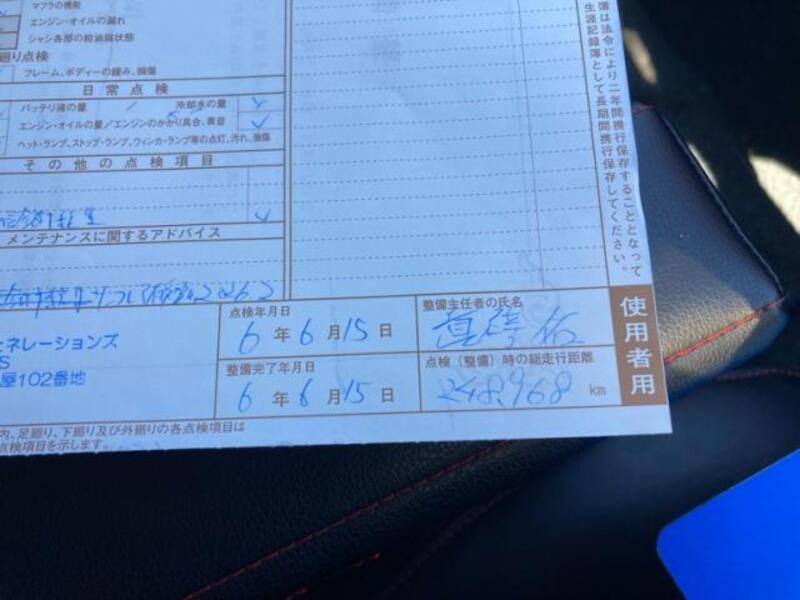 マフラの機能
エンジン・オイルの漏れ
シャシ各部の給油脂状態
廻り点検
フレーム、ボディーの緩み、損傷
日常点検
バッテリ液の量 / 冷却水の量 ✓
エンジン・オイルの量/エンジンのかかり具合、異音 ✓
ヘッド・ランプ、ストップ・ランプ、ウィンカ・ランプ等の点灯、汚れ、損傷
その他の点検項目
✓
メンテナンスに関するアドバイス
点検年月日
6年6月15日
整備主任者の氏名
ェネレーションズ
S
屋102番地
整備完了年月日
6年6月15日
点検(整備)時の総走行距離
248,968 km
使用者用
内、足廻り、下廻り及び外廻りの各点検項目は
点検項目を示します。
簿は法令により二年間携行保存することとなって
生涯記録簿として長期間携行保存してください。